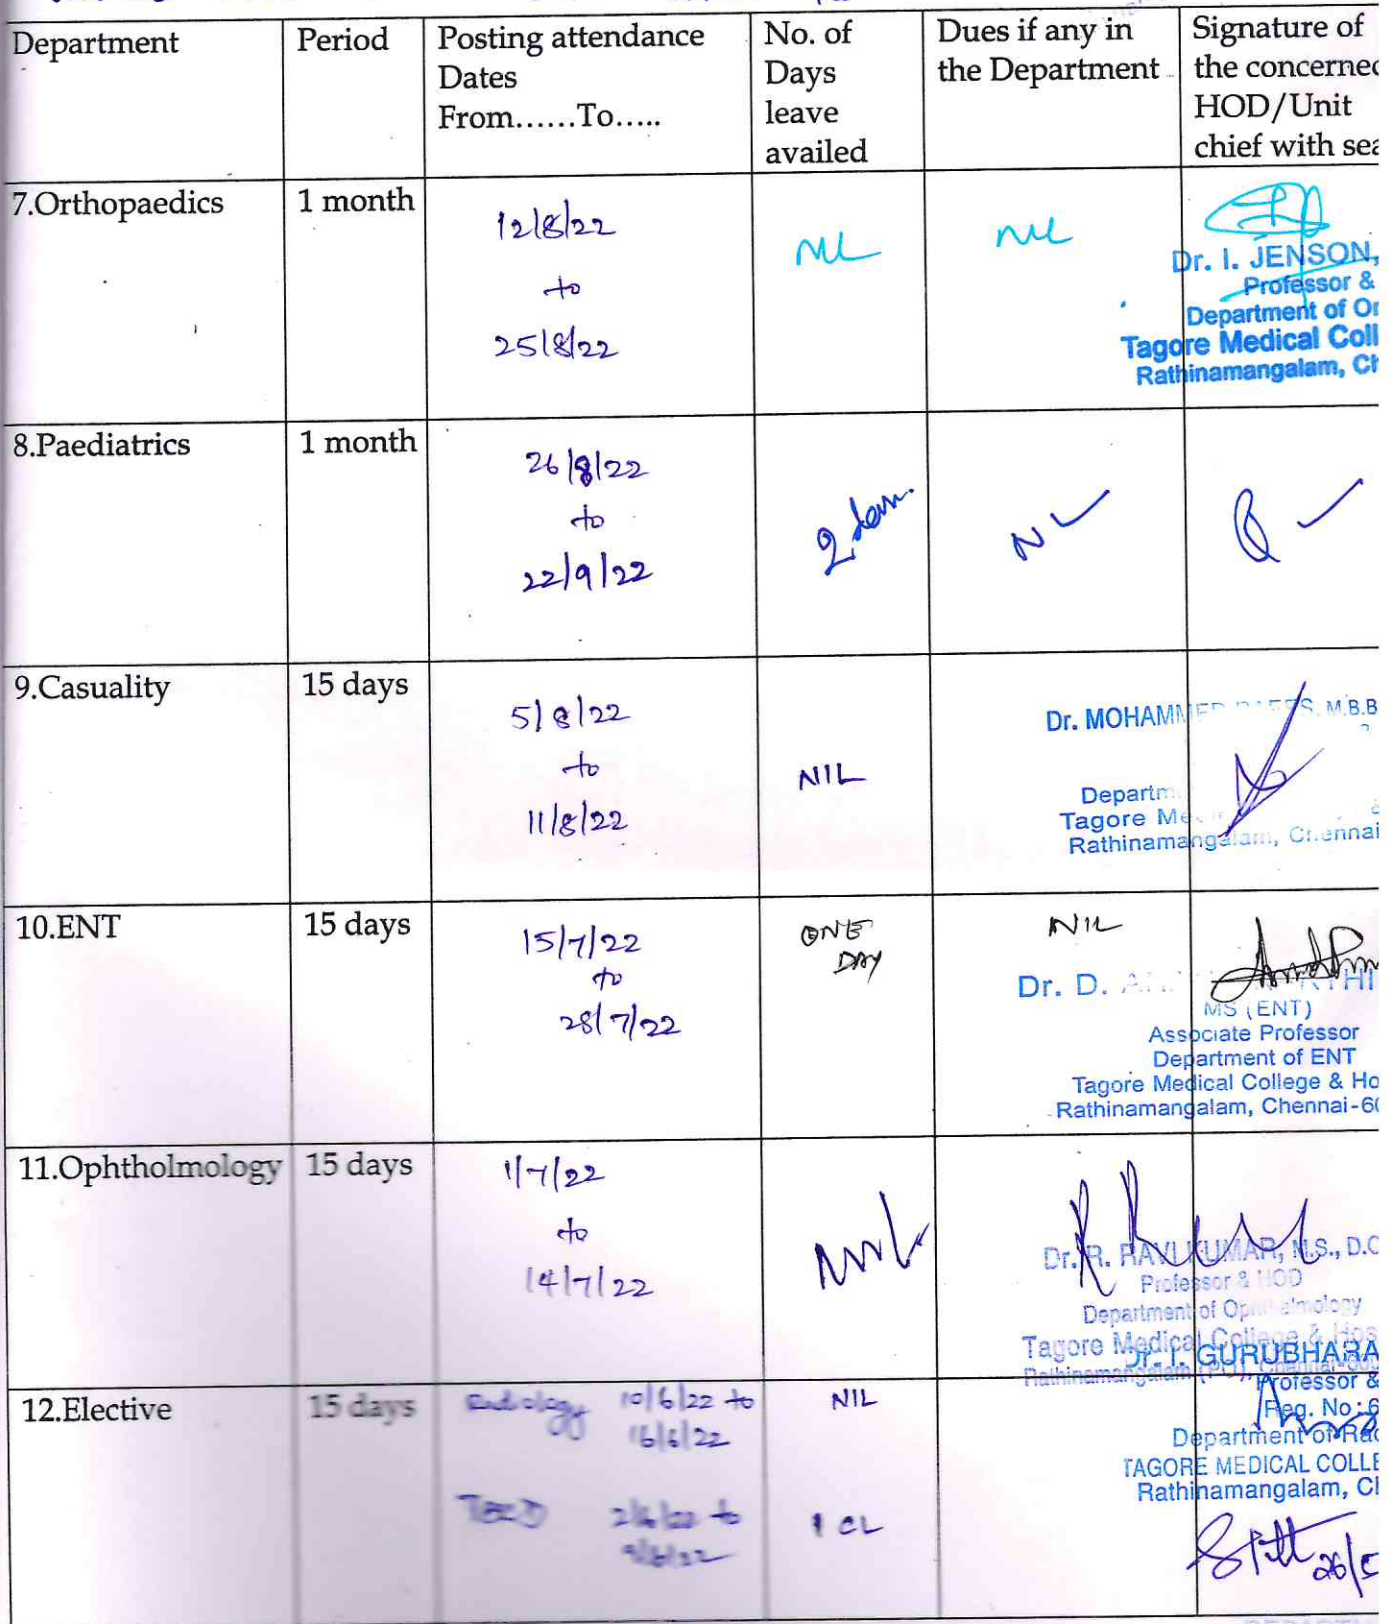 Department
Period
Posting attendance
Dates
From......To.....
No. of
Days
leave
availed
Dues if any in
the Department
Signature of
the concerned
HOD/Unit
chief with sea
7.Orthopaedics
1 month
12/8/22
to
25/8/22
NIL
NIL
Dr. I. JENSON,
Professor &
Department of Or
Tagore Medical Coll
Rathinamangalam, Ch
8.Paediatrics
1 month
26/8/22
to
22/9/22
2
9.Casuality
15 days
5/8/22
to
11/8/22
NIL
Dr. MOHAMMED M.B.B
Departm
Tagore Me
Rathinamangalam, Chennai
10.ENT
15 days
15/7/22
to
28/7/22
ONE
DAY
NIL
Dr. D.
MS (ENT)
Associate Professor
Department of ENT
Tagore Medical College & Ho
Rathinamangalam, Chennai-60
11.Ophtholmology
15 days
1/7/22
to
14/7/22
Dr. R. RAVI KUMAR, M.S., D.O
Professor & HOD
Department of Ophthalmology
Tagore Medical College & Hos
Rathinamangalam
12.Elective
15 days
Radiology 10/6/22 to
16/6/22
NIL
Dr. I. GURUBHARA
Professor &
Reg. No:6
Department of Rad
TAGORE MEDICAL COLLE
Rathinamangalam, Ch
to
1 CL